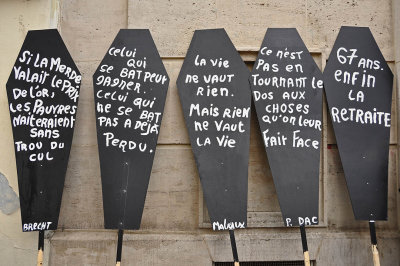 Si la merde
valait le prix
de l'or,
les pauvres
naîteraient
sans
trou du
cul
Brecht
Celui
qui
se bat peut
gagner.
Celui qui
ne se bat
pas a déjà
perdu.
La vie
ne vaut
rien.
Mais rien
ne vaut
la vie
Malraux
Ce n'est
pas en
tournant le
dos aux
choses
qu'on leur
fait face
P. Dac
67 ans.
enfin
la
retraite